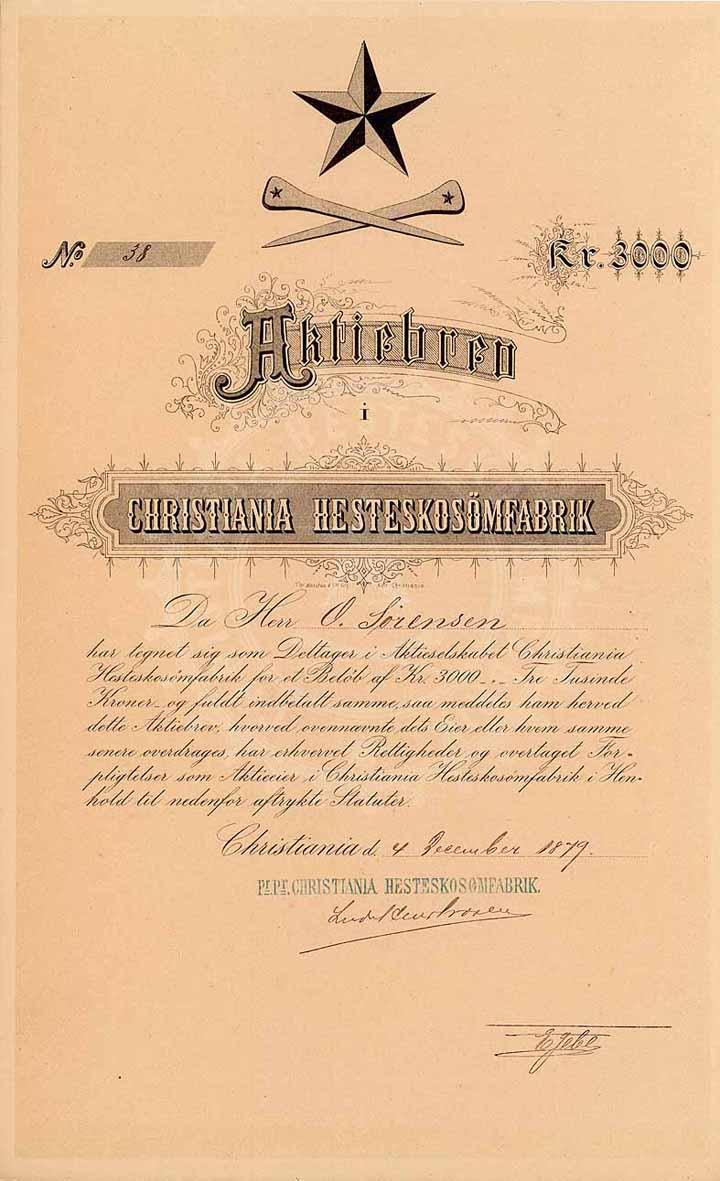 No. 38
Kr. 3000
Aktiebrev
i
CHRISTIANIA HESTESKOSÖMFABRIK
Da Herr O. Sørensen
har tegnet sig som Deltager i Aktieselskabet Christiania
Hesteskosömfabrik for et Belöb af Kr. 3000 „ Tre Tusinde
Kroner og fuldt indbetalt samme, saa meddeles ham herved
dette Aktiebrev, hvorved ovennævnte dets Eier eller hvem samme
senere overdrages, har erhvervet Rettigheder og overtaget For-
pligtelser som Aktieeier i Christiania Hesteskosömfabrik i Hen-
hold til nedenfor aftrykte Statuter.
Christiania d. 4 December 1879.
Pr. Pr. CHRISTIANIA HESTESKOSÖMFABRIK.